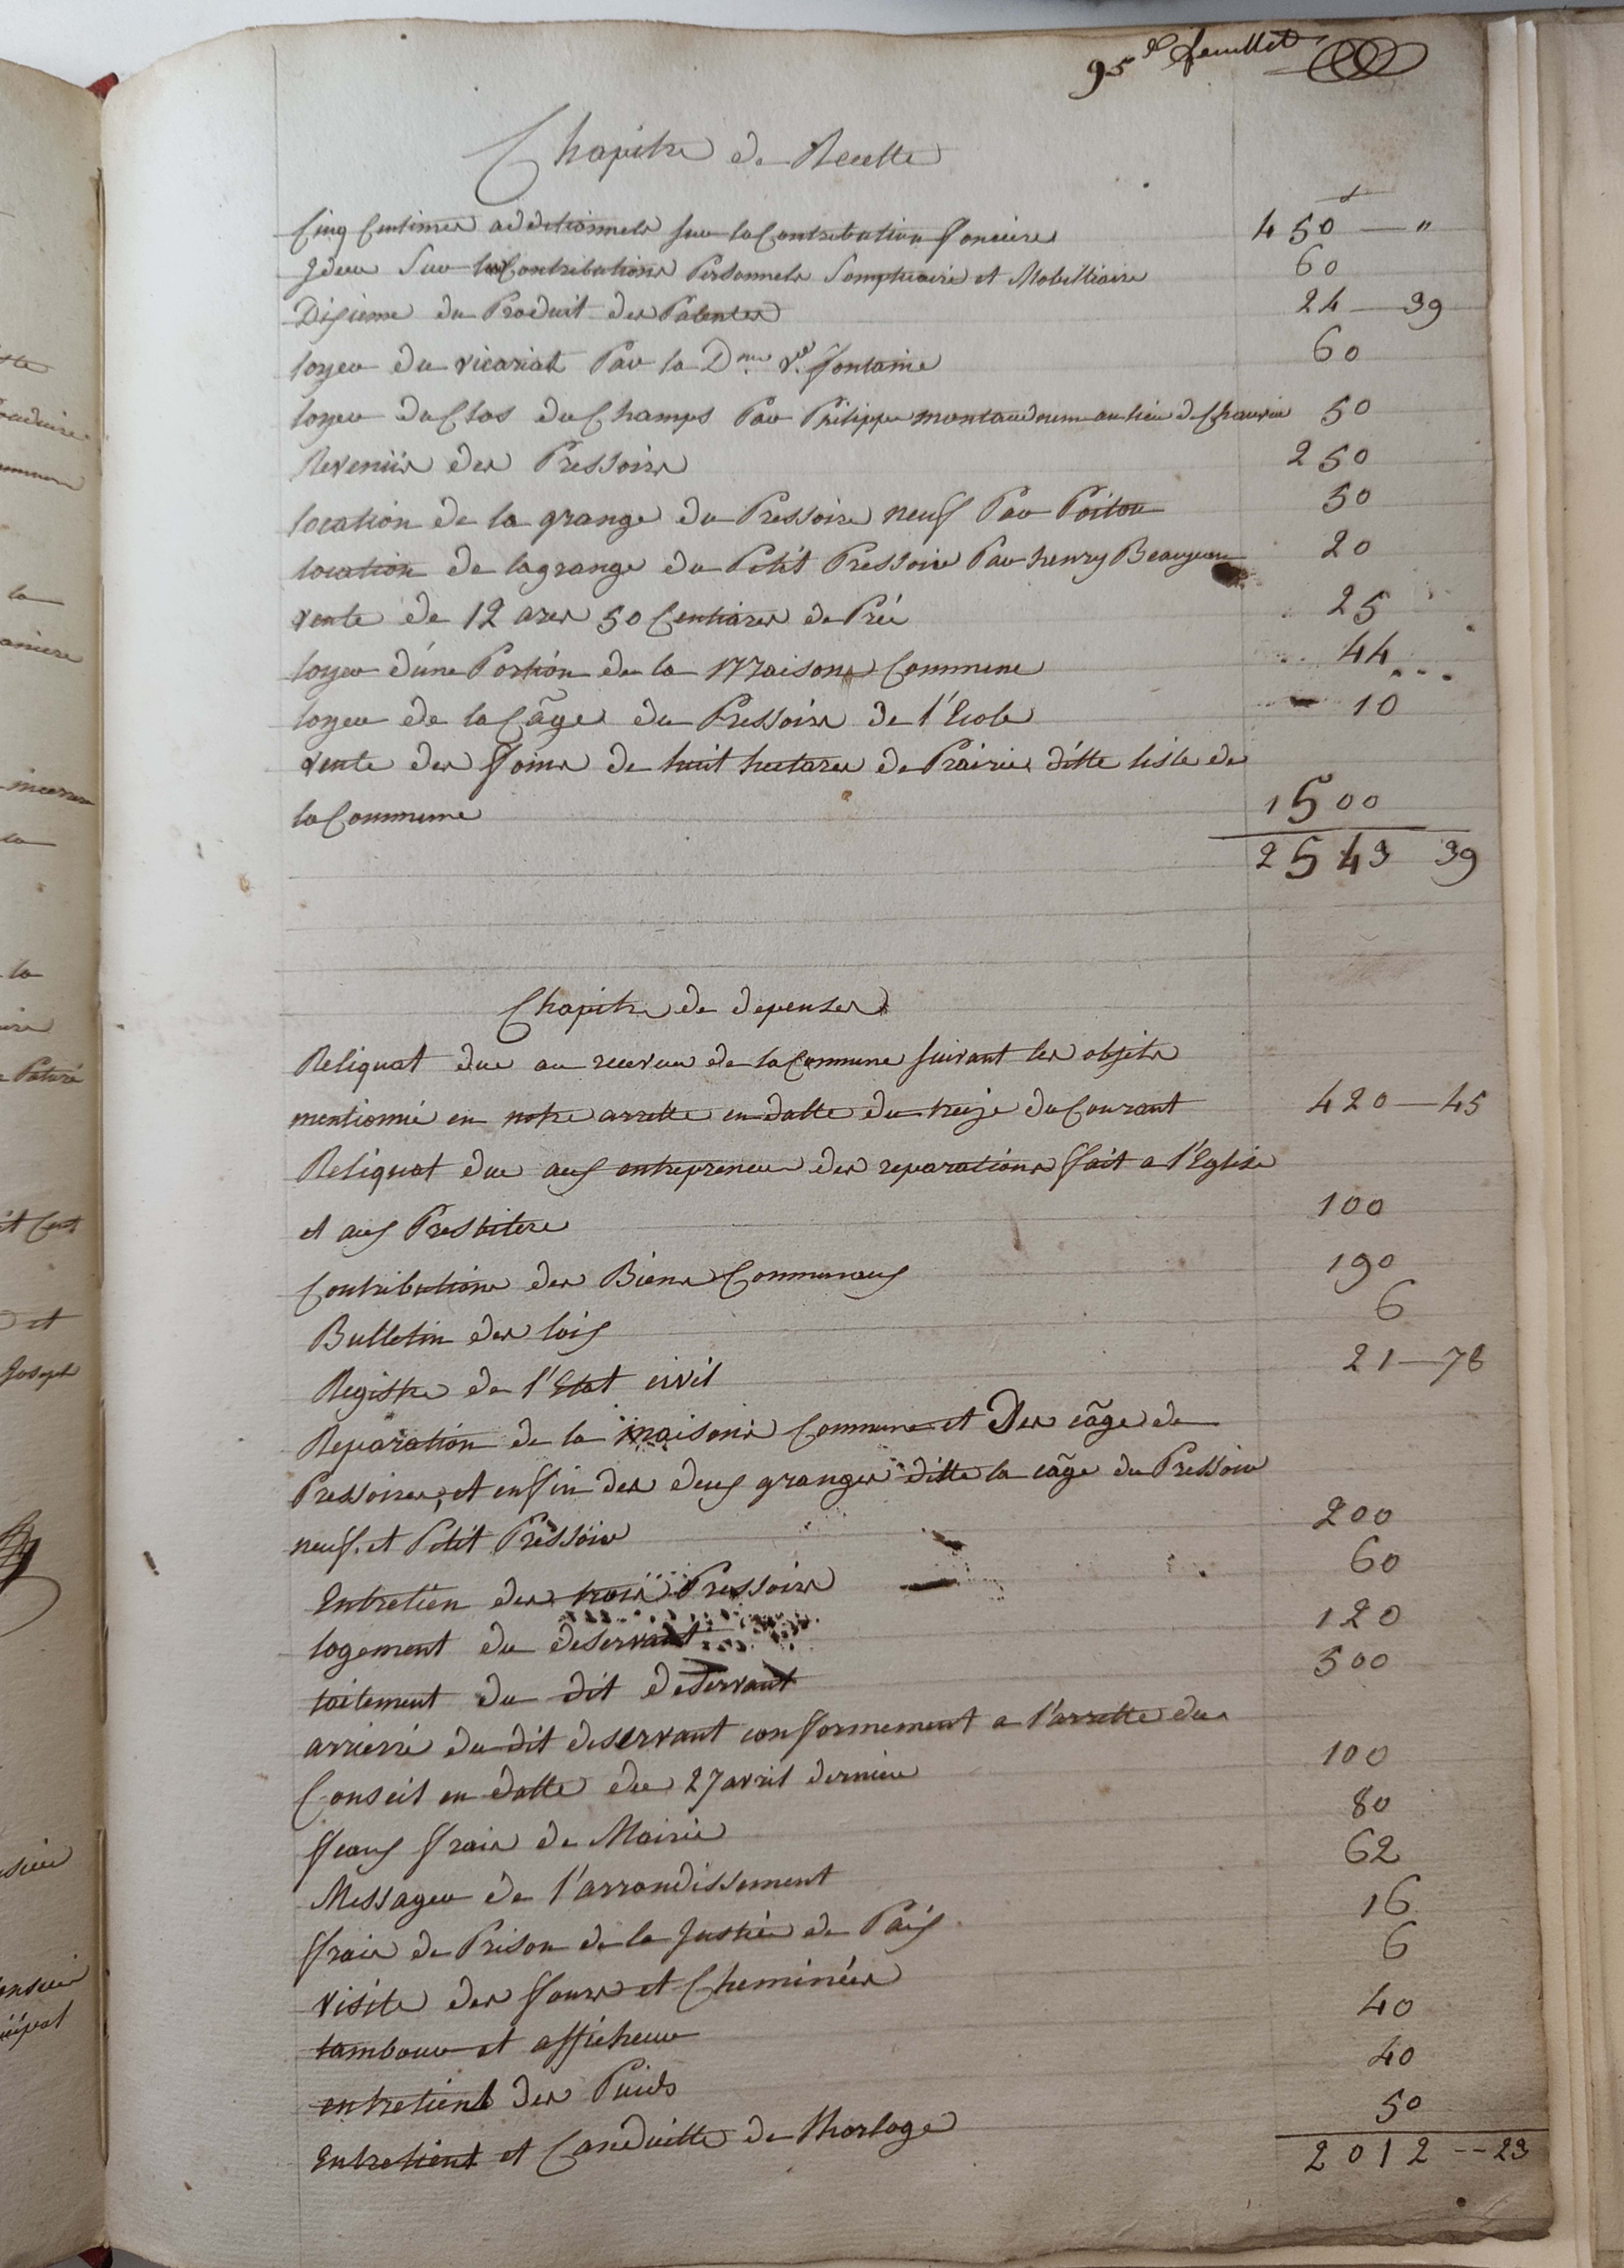 95e feuillet
Chapitre de Recette
Cinq Centimes additionnels sur la Contribution fonciere 450 — "
Idem Sur les Contributions Personnels Somptuaire et Mobilliaire 60
Dixieme du Produit des Patentes 24 — 39
loyer du vicariat Par la Dme Ve fontaine 60
loyer du Clos du Champs Par Philippe montaudouin au lieu de Chauvin 50
Revenüs des Pressoirs 250
location de la grange du Pressoire neuf Par Poitou 50
location de la grange du Petit Pressoir Par henry Beaujean 20
vente de 12 ares 50 Centiares de Pré 25
loyer d'une Portion de la Maison Commune 44
loyer de la Câge du Pressoirs de l'Ecole 10
vente des foins de huit hectares de Prairies ditte lisle de
la Commune 1500
2543 39
Chapitre de depenses
Reliquat due au receveur de la Commune suivant les objets
mentionné en notre arrette en datte du treize du Courant 420 — 45
Reliquat due aux entrepreneur des reparations fait a l'Eglise
et aux Presbitere 100
Contributions des Biens Communaux 190
Bulletin des loix 6
Registre de l'Etat civil 21 — 78
Reparation de la maisons Commune et Des câge de
Pressoires, et enfin des deux granges ditte la câge du Pressoir
neuf. et Petit Pressoir 200
Entretien des trois Pressoirs 60
logement du deservant 120
taitement du dit deservant 500
arriérré du dit deservant conformement a l'arrette du
Conseil en datte du 27 avril dernier 100
feaux frais de Mairie 80
Messager de l'arrondissement 62
frais de Prison de la Justice de Paix 16
visite des fours et Cheminées 6
tambour et afficheur 40
entretient des Puids 40
Entretient et Conduitte de lhorloge 50
2012 -- 23